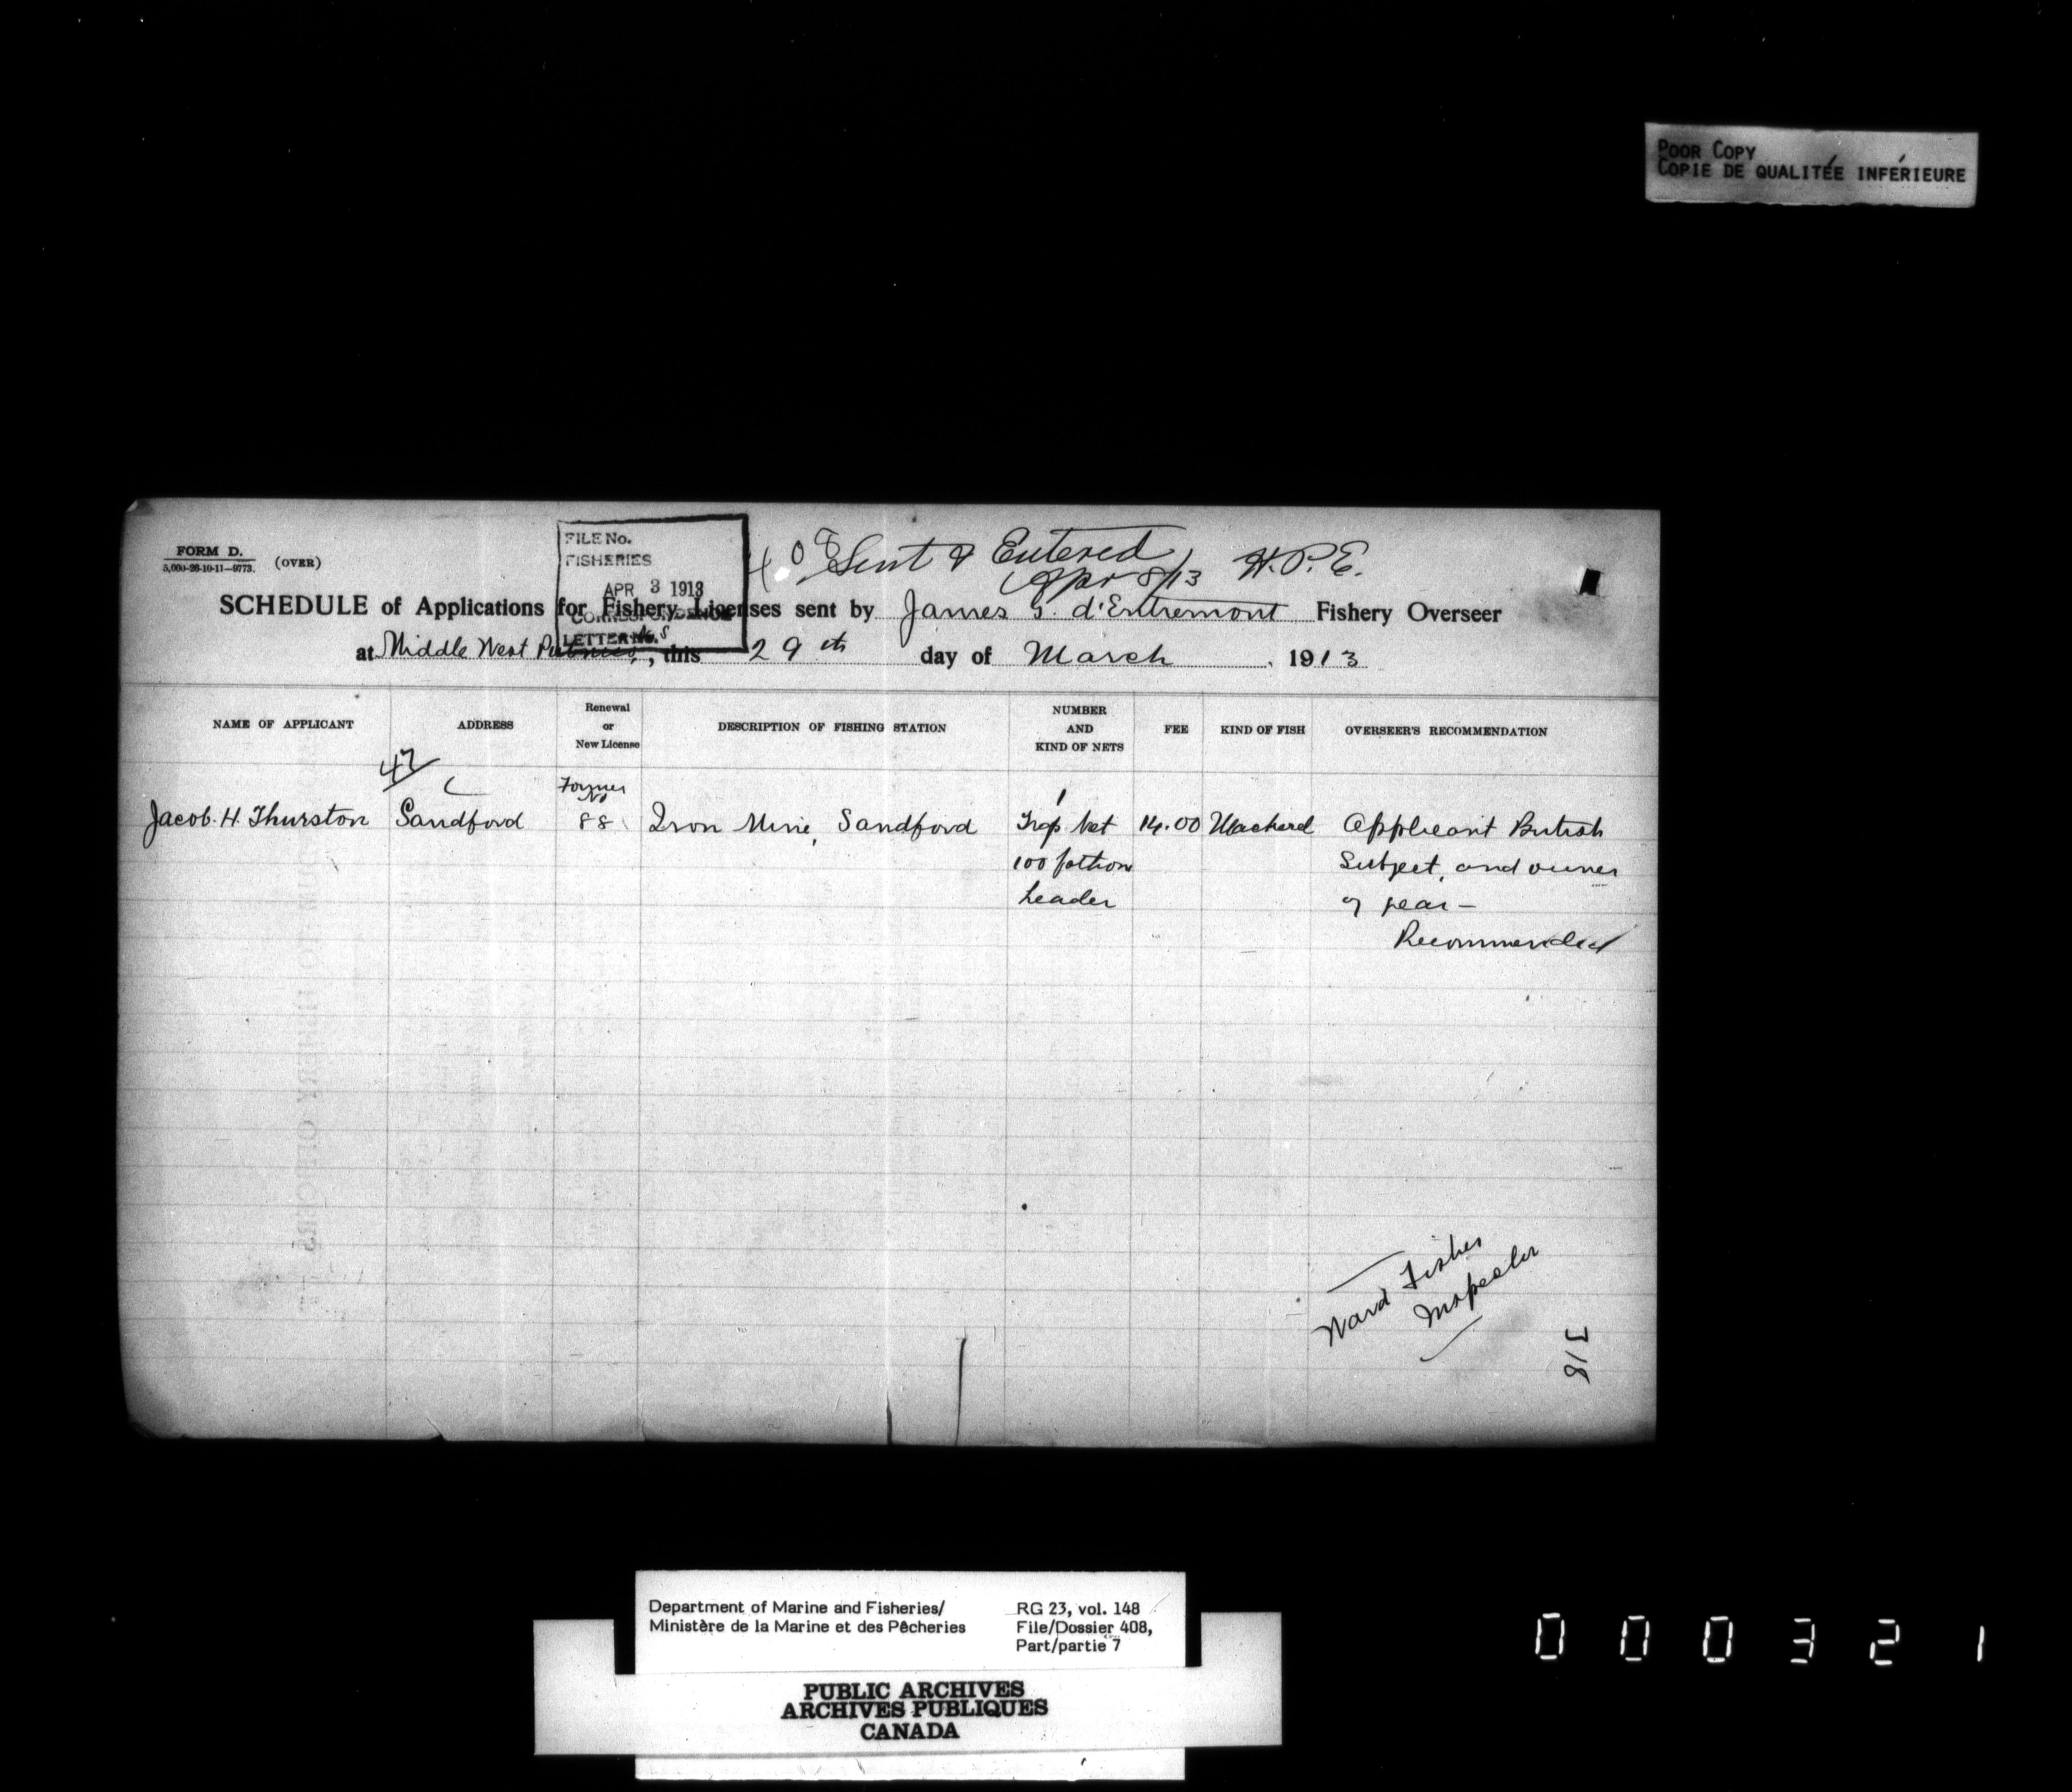 POOR COPY
COPIE DE QUALITÉE INFÉRIEURE
FORM D.
5,000-26-10-11—9773.
(OVER)
FILE No.
FISHERIES
APR 3 1913
CORRESPONDENCE
LETTER No.
Sent & Entered
Apr 8/13 H.P.E.
SCHEDULE of Applications for Fishery Licenses sent by James G. d'Entremont Fishery Overseer
at Middle West Pubnico, this 29th day of March, 1913
NAME OF APPLICANT
ADDRESS
Renewal
or
New License
DESCRIPTION OF FISHING STATION
NUMBER
AND
KIND OF NETS
FEE
KIND OF FISH
OVERSEER'S RECOMMENDATION
47
Former
No
1
Jacob. H. Thurston Sandford 88 Iron Mine, Sandford Trap Net 14.00 Mackerel Applicant British
100 fathom Subject, and owner
Leader of gear —
Recommended
Ward Fisher
Inspector
318
Department of Marine and Fisheries/
Ministère de la Marine et des Pêcheries
RG 23, vol. 148
File/Dossier 408,
Part/partie 7
PUBLIC ARCHIVES
ARCHIVES PUBLIQUES
CANADA
000321